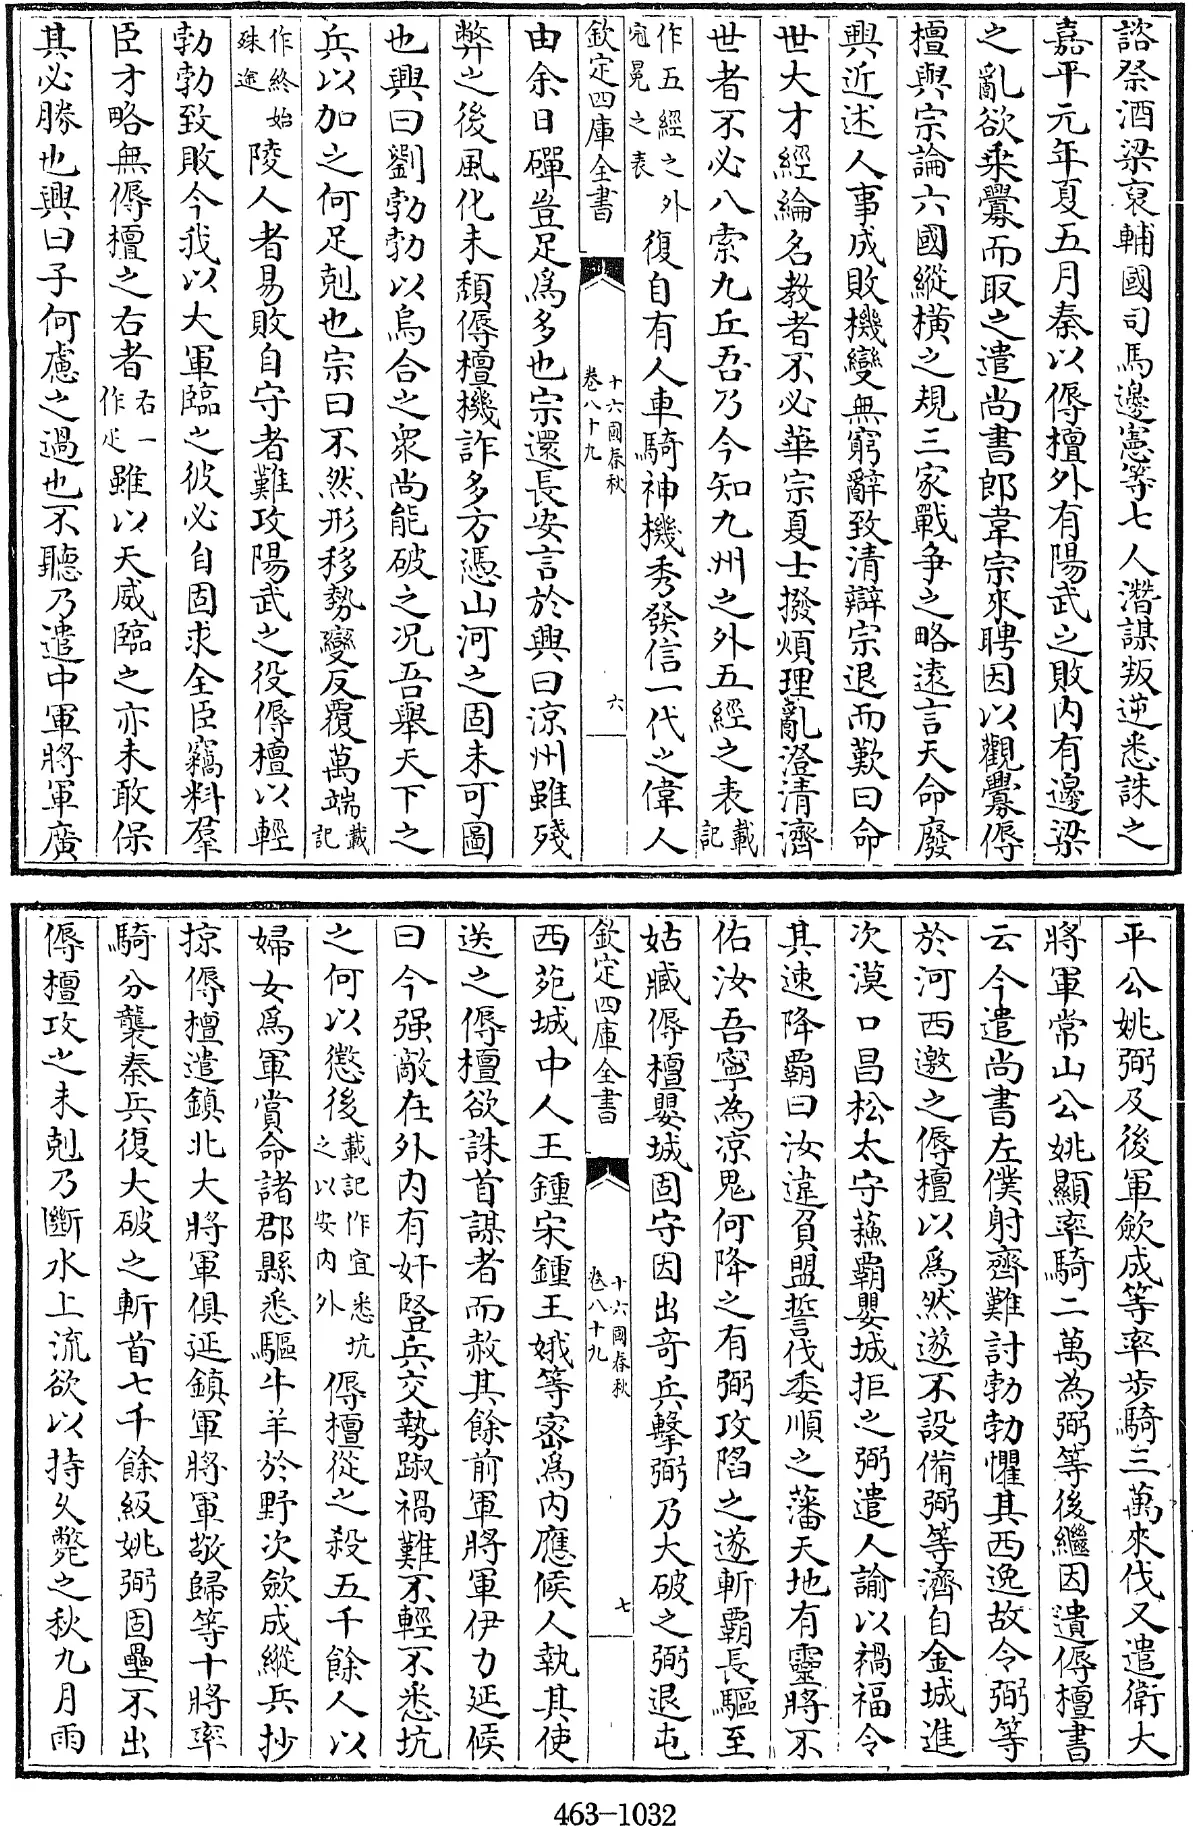 諮祭酒梁裒輔國司馬邊憲等七人潛謀叛逆悉誅之
嘉平元年夏五月秦以傉檀外有陽武之敗内有邊梁
之亂欲乗釁而取之遣尚書郎韋宗來聘因以觀釁傉
檀與宗論六國縱横之規三家戰争之略遠言天命廢
興近述人事成敗機變無窮辭致清辯宗退而歎曰命
世大才經綸名教者不必華宗夏士撥煩理亂澄清濟
世者不必八索九丘吾乃今知九州之外五經之表載記
作五經之外
宛冕之表復自有人車騎神機秀發信一代之偉人
欽定四庫全書
十六國春秋
卷八十九
六
由余日磾豈足爲多也宗還長安言於興曰涼州雖殘
弊之後風化未頽傉檀機詐多方憑山河之固未可圖
也興曰劉勃勃以烏合之衆尚能破之况吾舉天下之
兵以加之何足剋也宗曰不然形移勢變反覆萬端載記
作終始
殊途陵人者易敗自守者難攻陽武之役傉檀以輕
勃勃致敗今我以大軍臨之彼必自固求全臣竊料羣
臣才略無傉檀之右者右一
作疋雖以天威臨之亦未敢保
其必勝也興曰子何慮之過也不聽乃遣中軍將軍廣
平公姚弼及後軍歛成等率步騎三萬來伐又遣衛大
將軍常山公姚顯率騎二萬為弼等後繼因遺傉檀書
云今遣尚書左僕射齊難討勃勃懼其西逸故令弼等
於河西邀之傉檀以爲然遂不設備弼等濟自金城進
次漠口昌松太守蘓覇嬰城拒之弼遣人諭以禍福令
其速降覇曰汝違負盟誓伐委順之藩天地有靈將不
佑汝吾寧為凉鬼何降之有弼攻陷之遂斬覇長驅至
姑臧傉檀嬰城固守因出竒兵擊弼乃大破之弼退屯
欽定四庫全書
十六國春秋
卷八十九
七
西苑城中人王鍾宋鍾王娥等密爲内應候人執其使
送之傉檀欲誅首謀者而赦其餘前軍將軍伊力延侯
曰今强敵在外内有奸竪兵交勢踧禍難不輕不悉坑
之何以懲後載記作宜悉坑
之以安内外傉檀從之殺五千餘人以
婦女爲軍賞命諸郡縣悉驅牛羊於野次歛成縱兵抄
掠傉檀遣鎮北大將軍俱延鎮軍將軍敬歸等十將率
騎分襲秦兵復大破之斬首七千餘級姚弼固壘不出
傉檀攻之未剋乃斷水上流欲以持久斃之秋九月雨
463-1032